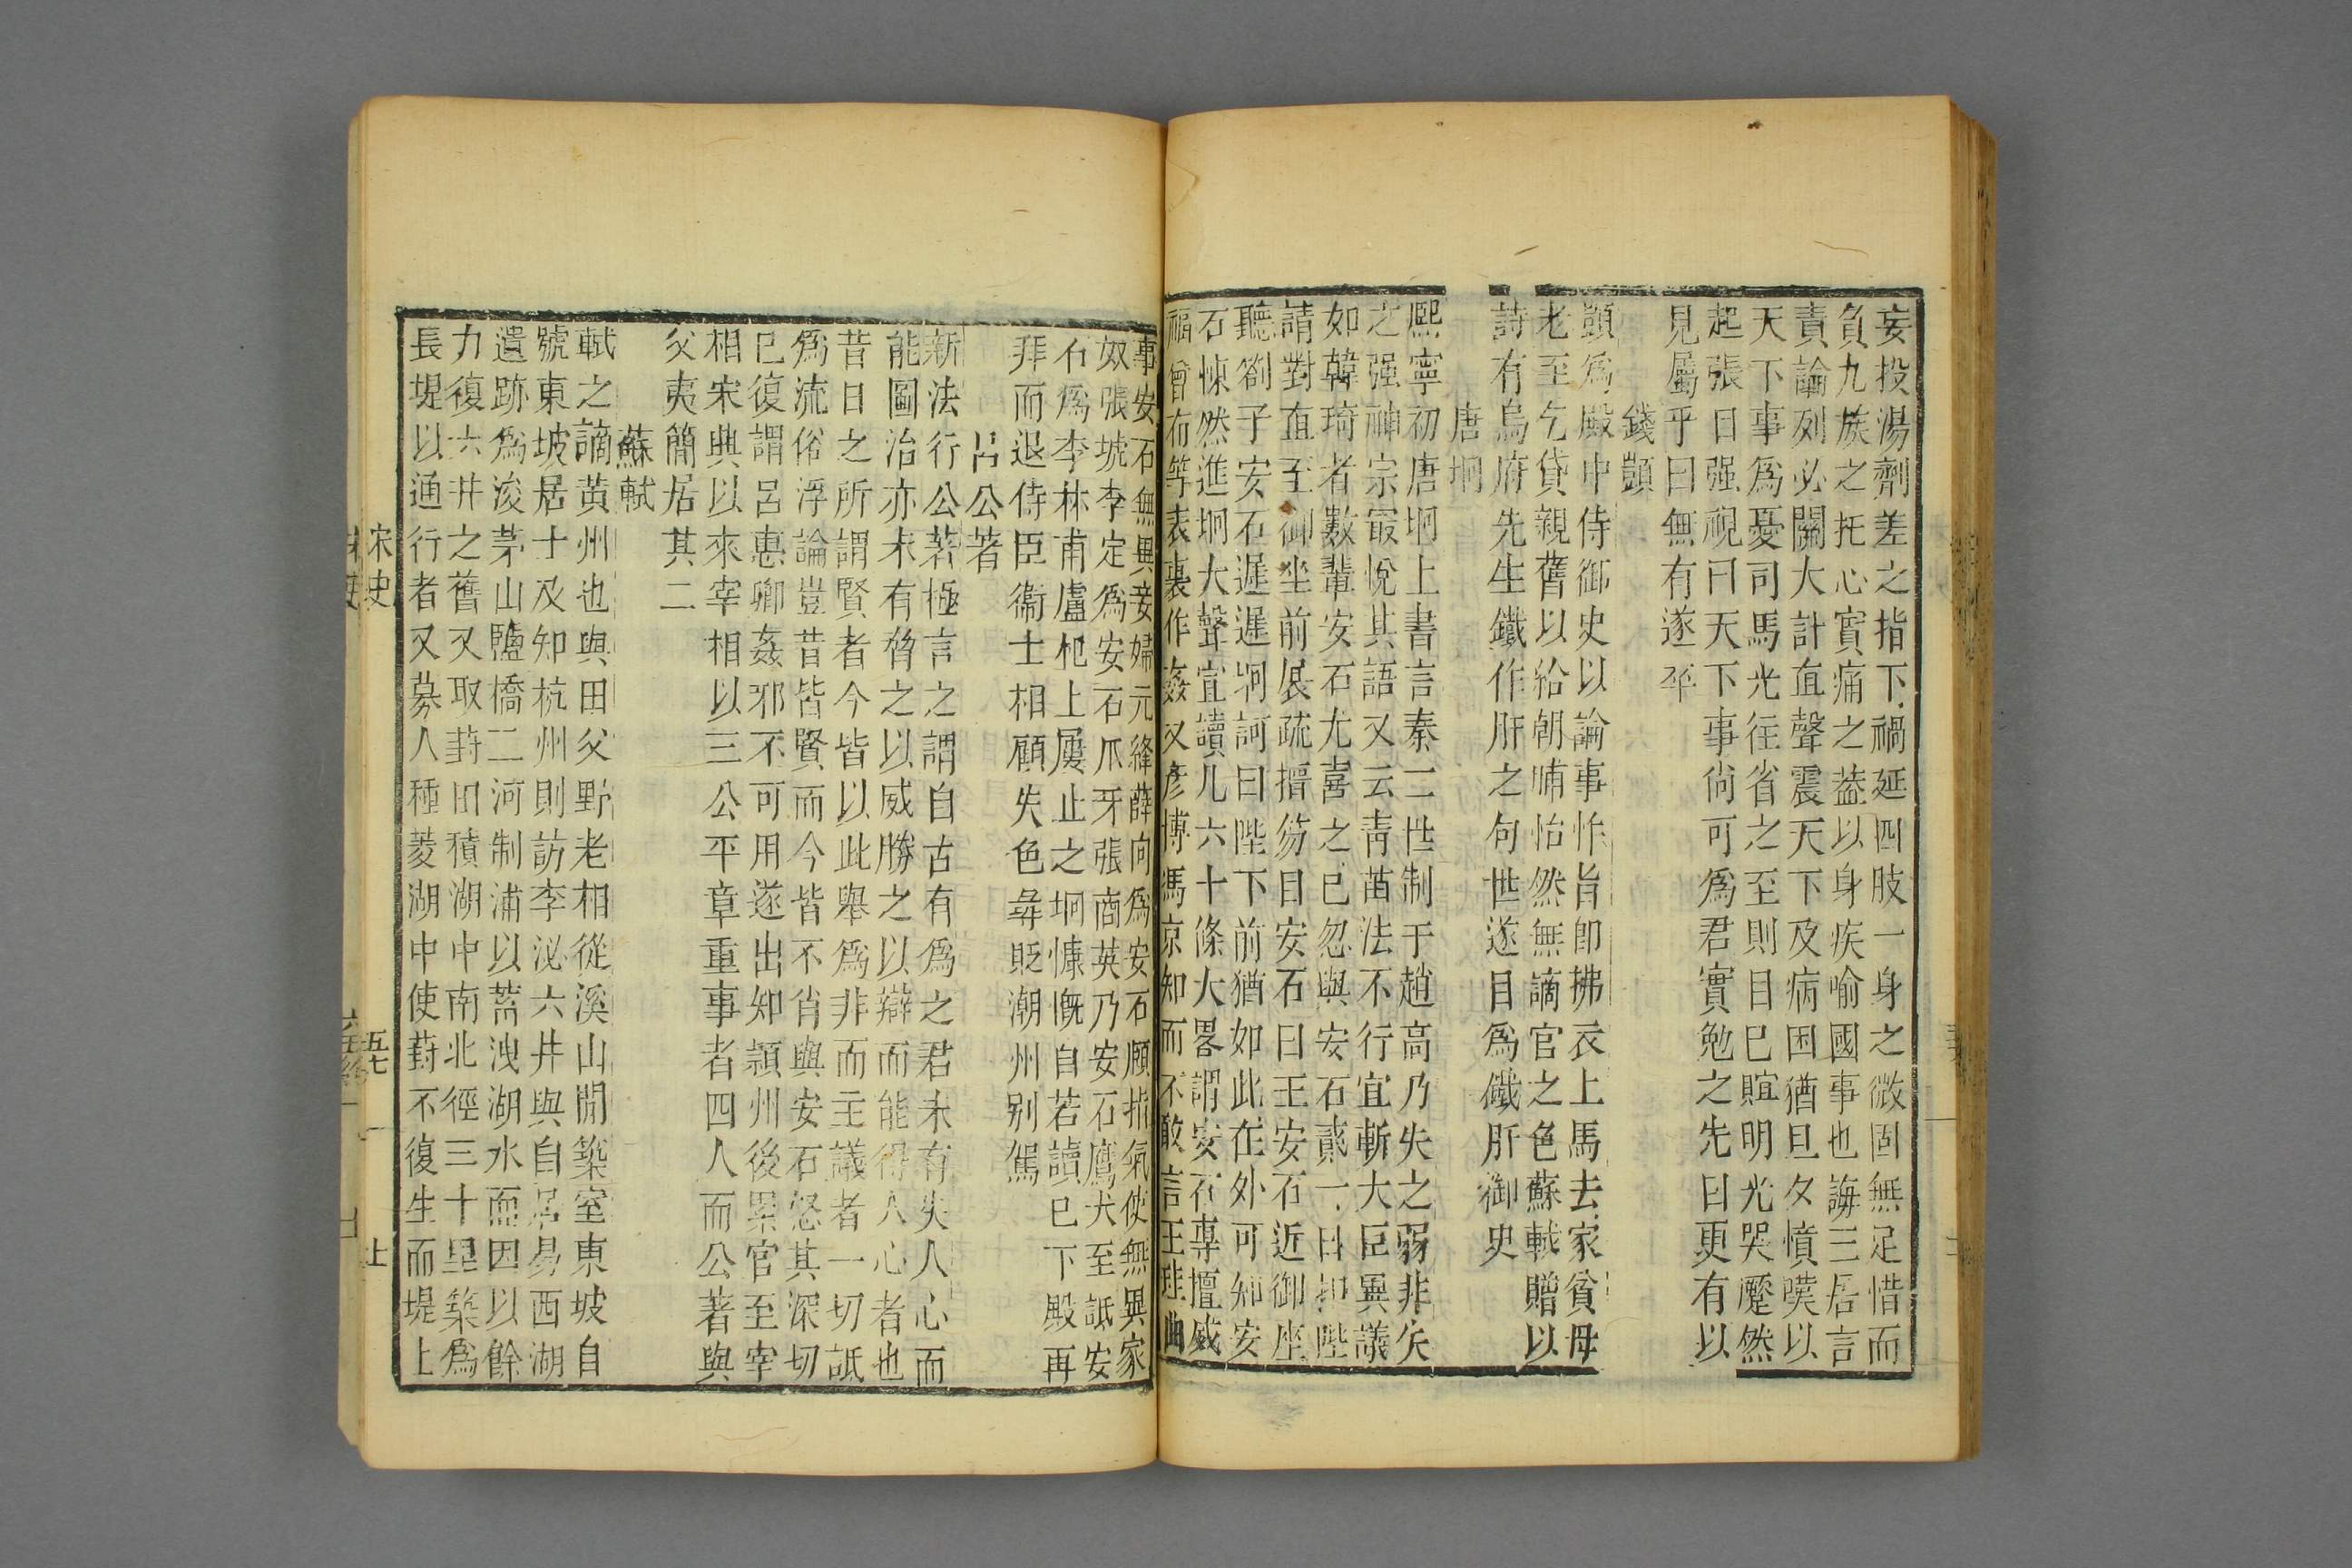 妄投湯劑差之指下禍延四肢一身之微固無足惜而
負九族之托心實痛之葢以身疾喻國事也誨三居言
責論列必關大計直聲震天下及病困猶旦夕憤嘆以
天下事爲憂司馬光往省之至則目已瞑明光哭蹷然
起張目强視曰天下事尚可爲君實勉之先曰更有以
見屬乎曰無有遂卒
錢顗
顗爲殿中侍御史以論事忤旨卽拂衣上馬去家貧母
老至乞貸親舊以給朝晡怡然無謫官之色蘇軾贈以
詩有烏府先生鐵作肝之句世遂目爲鐵肝御史
唐坰
熙寧初唐坰上書言秦二世制于趙高乃失之弱非失
之强神宗最悅其語又云靑苗法不行宜斬大臣異議
如韓琦者數輩安石尤喜之已忽與安石貳一日扣陛
請對直至御坐前展疏搢笏目安石曰王安石近御座
聽劄子安石遲遲坰訶曰陛下前猶如此在外可知安
石悚然進坰大聲宣讀凡六十條大畧謂安石專擅威
福曾布等表裏作姦文彥博馮京知而不敢言王珪曲
事安石無異妾婦元絳薛向爲安石頤指氣使無異家
奴張琥李定爲安石爪牙張商英乃安石鷹犬至詆安
石爲李林甫盧杞上屢止之坰慷慨自若讀已下殿再
拜而退侍臣衞士相顧失色尋貶潮州别駕
呂公著
新法行公著極言之謂自古有爲之君未有失人心而
能圖治亦未有脅之以威勝之以辯而能得人心者也
昔日之所謂賢者今皆以此舉爲非而主議者一切詆
爲流俗浮論豈昔皆賢而今皆不肖與安石怒其深切
已復謂呂惠卿姦邪不可用遂出知潁州後累官至宰
相宋興以來宰相以三公平章重事者四人而公著與
父夷簡居其二
蘇軾
軾之謫黃州也與田父野老相從溪山閒築室東坡自
號東坡居士及知杭州則訪李泌六井與自居易西湖
遺跡爲浚茅山鹽橋二河制浦以蓄洩湖水而因以餘
力復六井之舊又取葑田積湖中南北徑三十里築爲
長堤以通行者又募人種菱湖中使葑不復生而堤上
宋史 五七 上